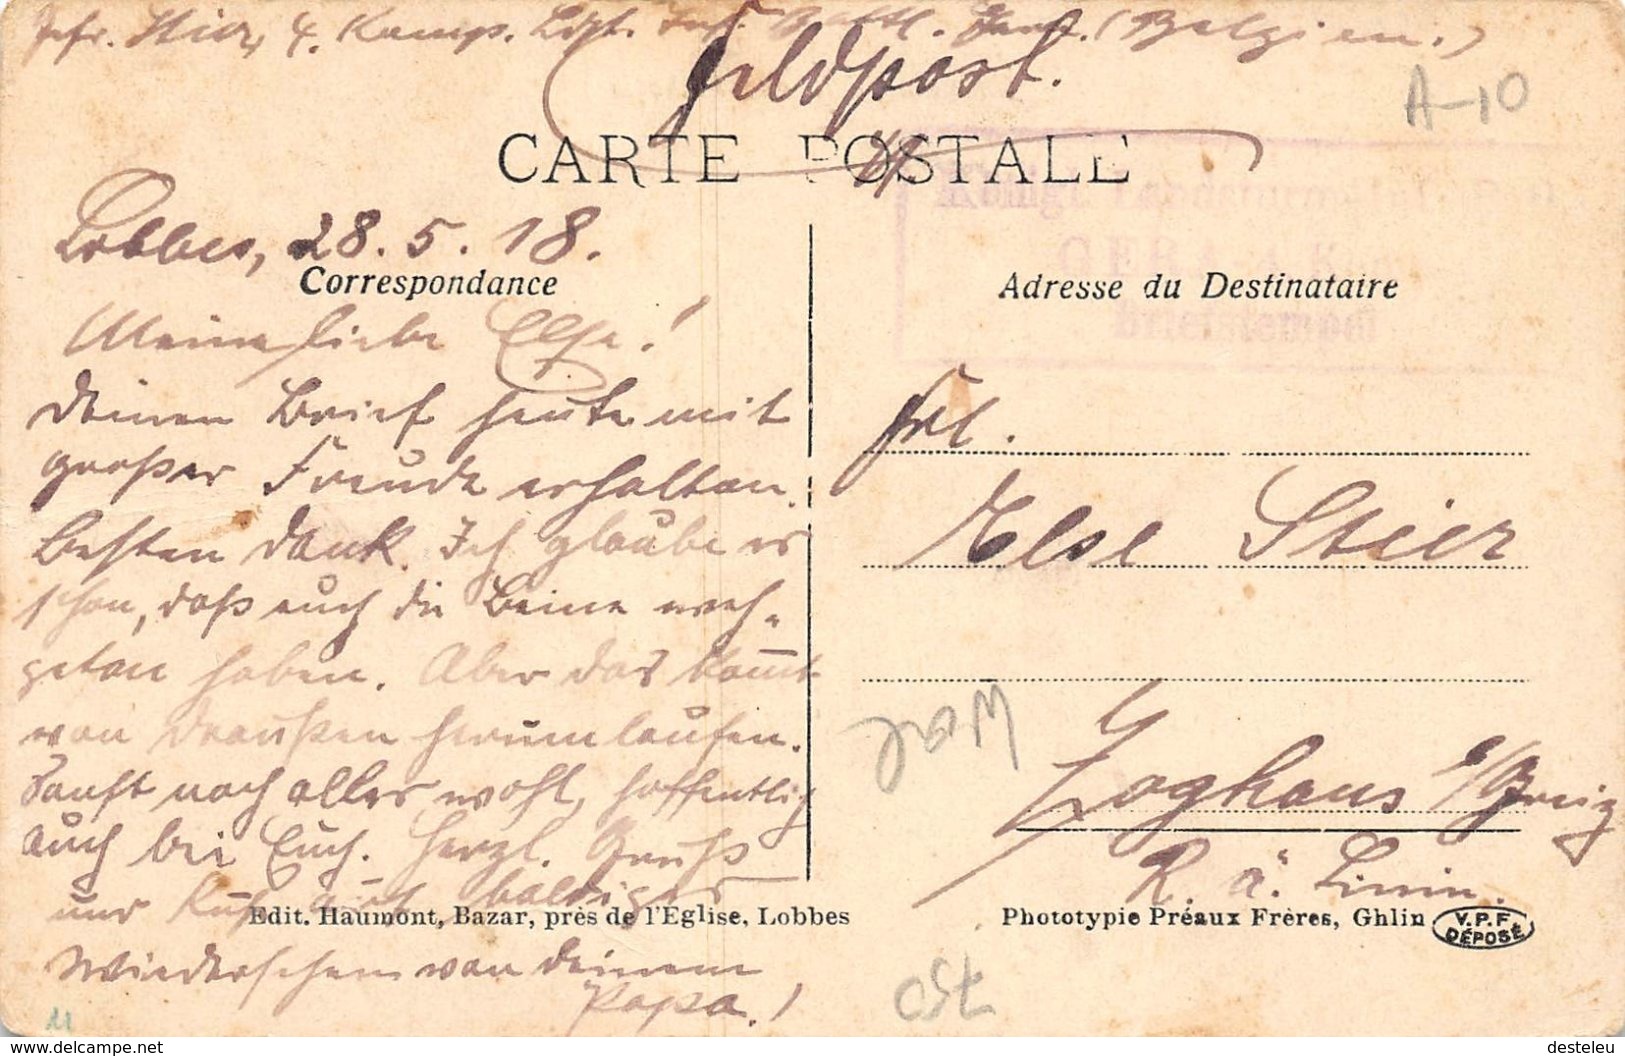 Gefr. Stier, 4. Komp. Ldst. Inf. Batl. Gera. (Belgien.)
Feldpost.
A-10
CARTE POSTALE
Königl. Landsturm
GERA
Briefstempel
Lobbes, 28.5.18.
Correspondance
Adresse du Destinataire
Meine liebe Else!
Deinen Brief heute mit
großer Freude erhalten.
Besten Dank. Ich glaube es
schon, daß auch die Beine weh-
getan haben. Aber das kom̅t
von Draußen herumlaufen.
Sonst noch alles wohl, hoffentlich
auch bei Euch. Herzl. Gruß
und Kuß auf baldiges
Wiedersehen von Deinem
Papa!
Frl.
Else Stier
Zoghaus b/Greiz
R. ä. Linie.
Edit. Haumont, Bazar, près de l'Eglise, Lobbes
Phototypie Préaux Frères, Ghlin
V.P.F.
DÉPOSÉ
11
delcampe.net
desteleu